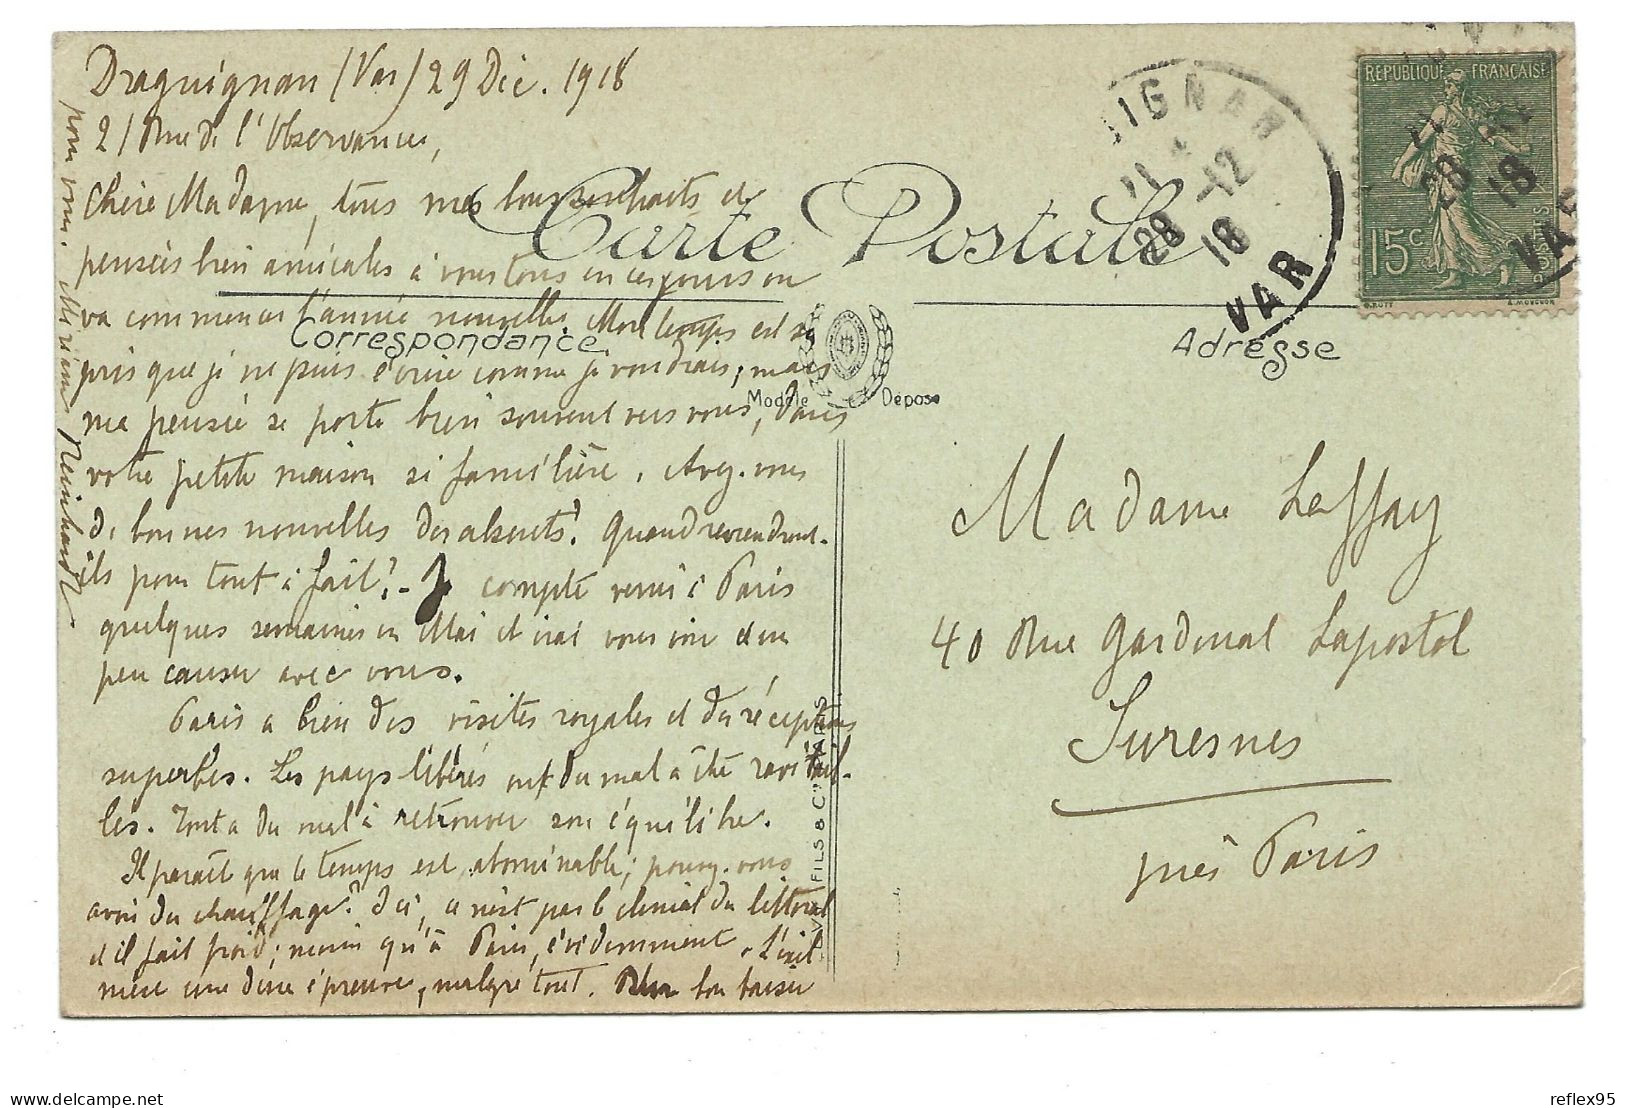 Draguignan (Var) 29 Déc. 1918
21 Rue de l'Observance,
Chère Madame, tous mes bons souhaits et
pensées bien amicales à vous tous en ces jours où
va commencer l'année nouvelle. Mon temps est si
pris que je ne puis écrire comme je voudrais, mais
ma pensée se porte bien souvent vers vous, dans
votre petite maison si familière. Avez-vous
de bonnes nouvelles des absents? Quand reviendront-
ils pour tout à fait? - Je compte venir à Paris
quelques semaines en Mai et irai vous voir et un
peu causer avec vous.
Paris a bien des visites royales et des réceptions
superbes. Les pays libérés ont du mal à être ravitail-
lés. Tout a du mal à retrouver son équilibre.
Il paraît que le temps est abominable; pouvez-vous
avoir du chauffage? Ici, ce n'est pas le climat du littoral
et il fait froid; moins qu'à Paris, évidemment. L'exil
m'est une dure épreuve, malgré tout. Un bon baiser
pour vous. Myriam Reinhardt
Carte Postale
Correspondance
Adresse
Modèle Déposé
FILS & Cie PARIS
IGNAN
11
28 -12
18
VAR
REPUBLIQUE FRANÇAISE
15c
POSTES
O.ROTY
A.MOUCHON
11
28
18
VAR
Madame Leffay
40 Rue Gardenat Lapostol
Suresnes
près Paris
reflex95
www.delcampe.net